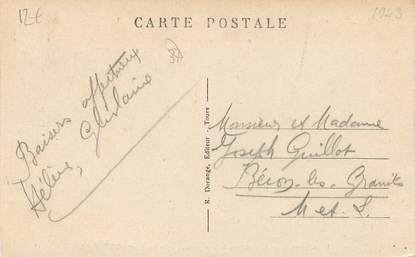 12€
CARTE POSTALE
1943
Baisers affectueux
Hélène, Ghislaine
R. Dorange, Editeur - Tours
Monsieur et Madame
Joseph Guillot
Bécon-les-Granits
M et L.